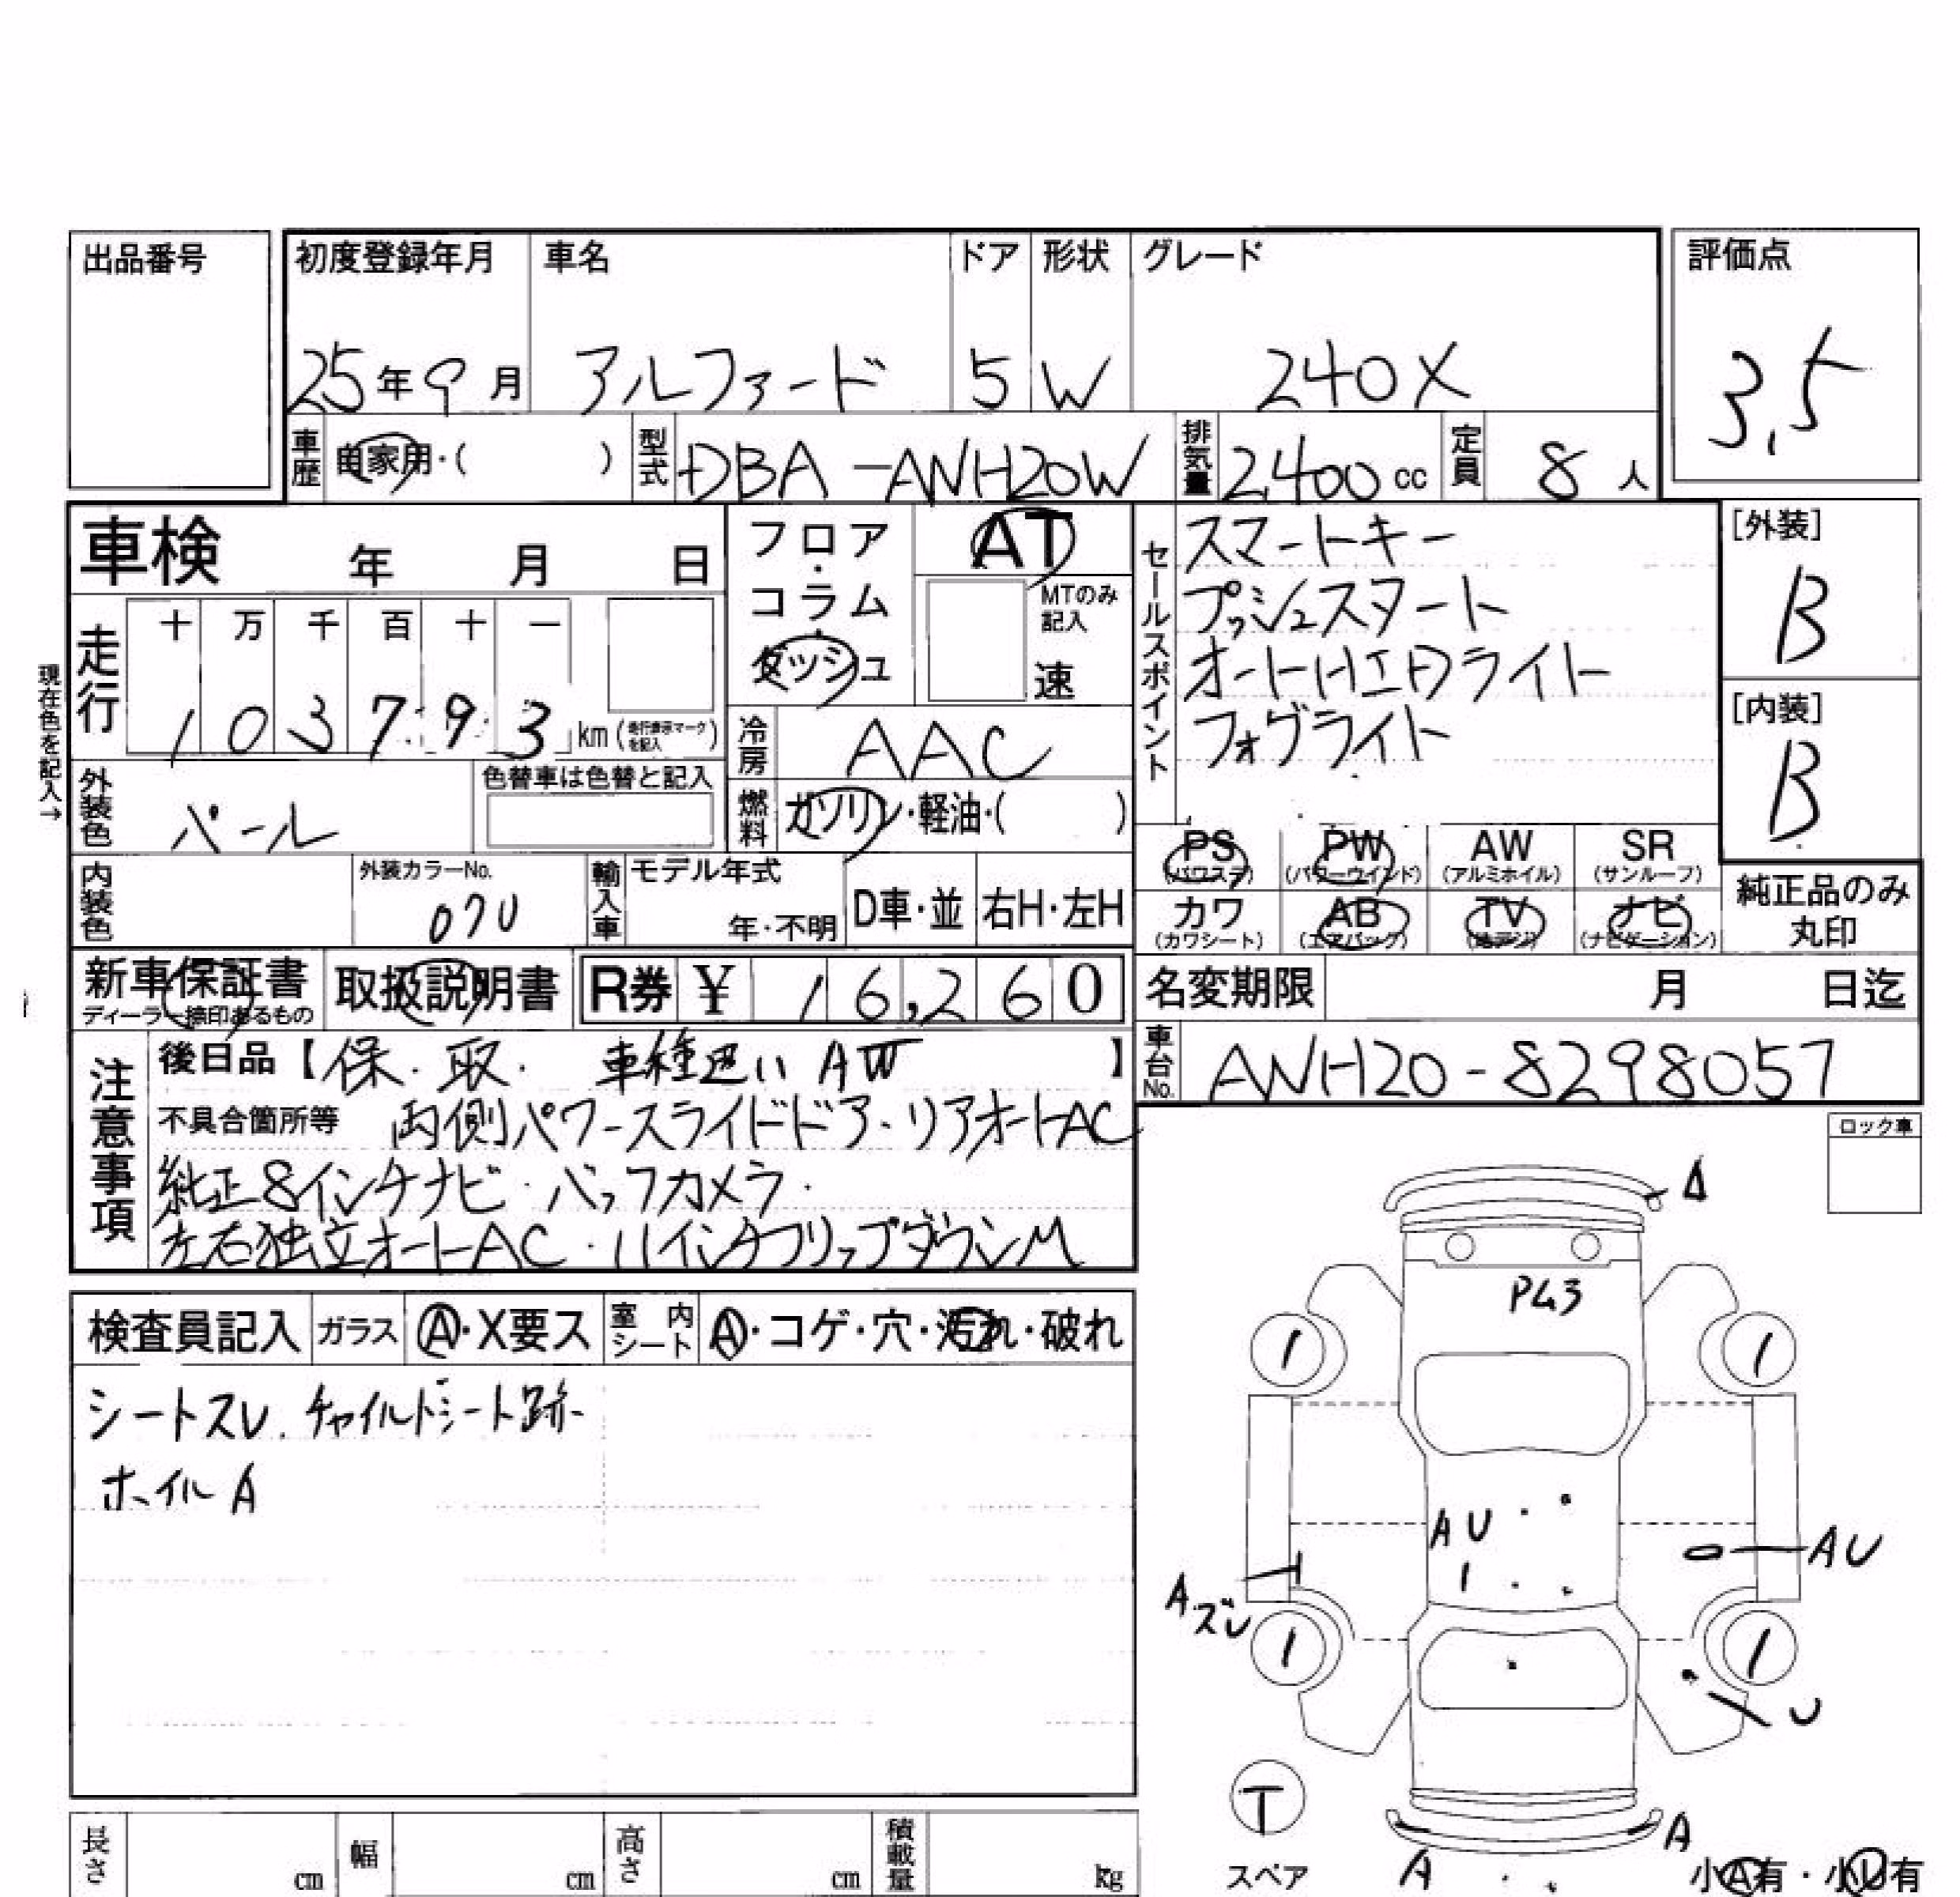 出品番号
初度登録年月 車名 ドア 形状 グレード 評価点
25年9月 アルファード 5 W 240X 3.5
車歴 自家用・( ) 型式 DBA-ANH20W 排気量 2400cc 定員 8人
車検 年 月 日
フロア・コラム・ダッシュ
AT
MTのみ記入
速
セールスポイント
スマートキー
プッシュスタート
オートHIDライト
フォグライト
[外装]
B
[内装]
B
現在色を記入→
走行 十 万 千 百 十 一
103793 km (走行表示マークを記入)
冷房 AAC
外装色 パール 色替車は色替と記入
燃料 ガソリン・軽油・( )
PS (パワステ) PW (パワーウインド) AW (アルミホイル) SR (サンルーフ)
カワ (カワシート) AB (エアバッグ) TV (地デジ) ナビ (ナビゲーション)
純正品のみ丸印
内装色 外装カラーNo. 070 輸入車 モデル年式 年・不明 D車・並 右H・左H
新車保証書 ディーラー捺印あるもの 取扱説明書 R券 ¥ 16,260
名変期限 月 日迄
車台No. ANH20-8298057
注意事項
後日品【保.取. 車種違いAW】
不具合箇所等 両側パワースライドドア・リアオートAC
純正8インチナビ・バックカメラ・
左右独立オートAC・11インチフリップダウンM
ロック車
検査員記入 ガラス A・X要ス 室内シート A・コゲ・穴・汚れ・破れ
シートスレ.チャイルドシート跡
ホイルA
A
1 1
AU
AU
Aズレ
1 1
U
T
スペア
A
A
小A有・小U有
長さ cm 幅 cm 高さ cm 積載量 kg